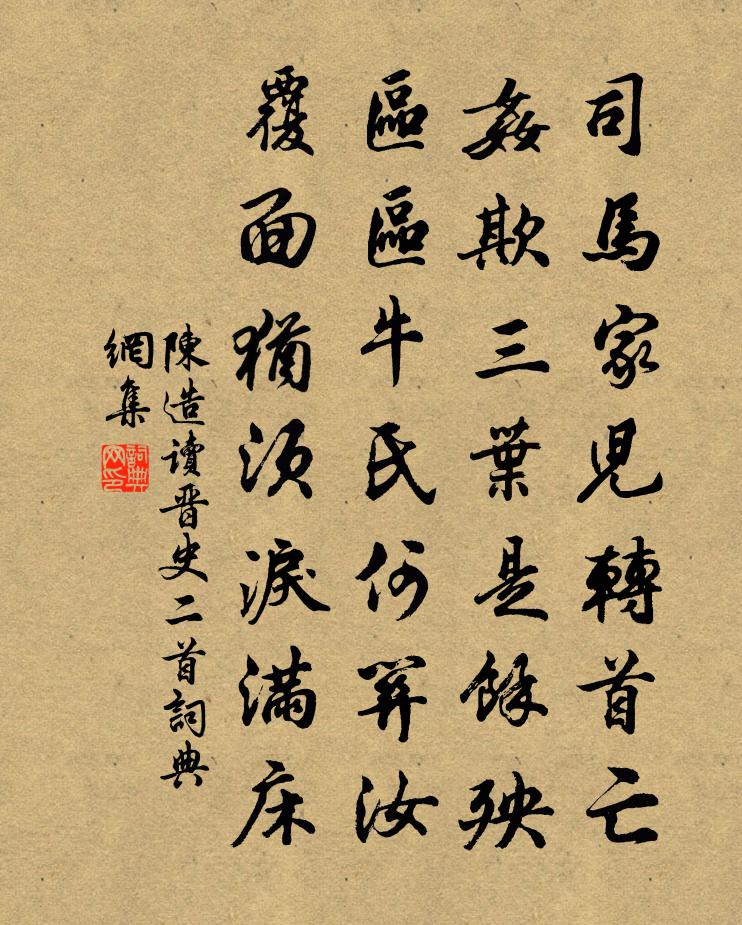 司馬家児轉首亡
姦欺三葉是餘殃
區區牛氏何關汝
覆面猶須淚滿床
陳造讀晋史二首詞典
網集
詞典
网印